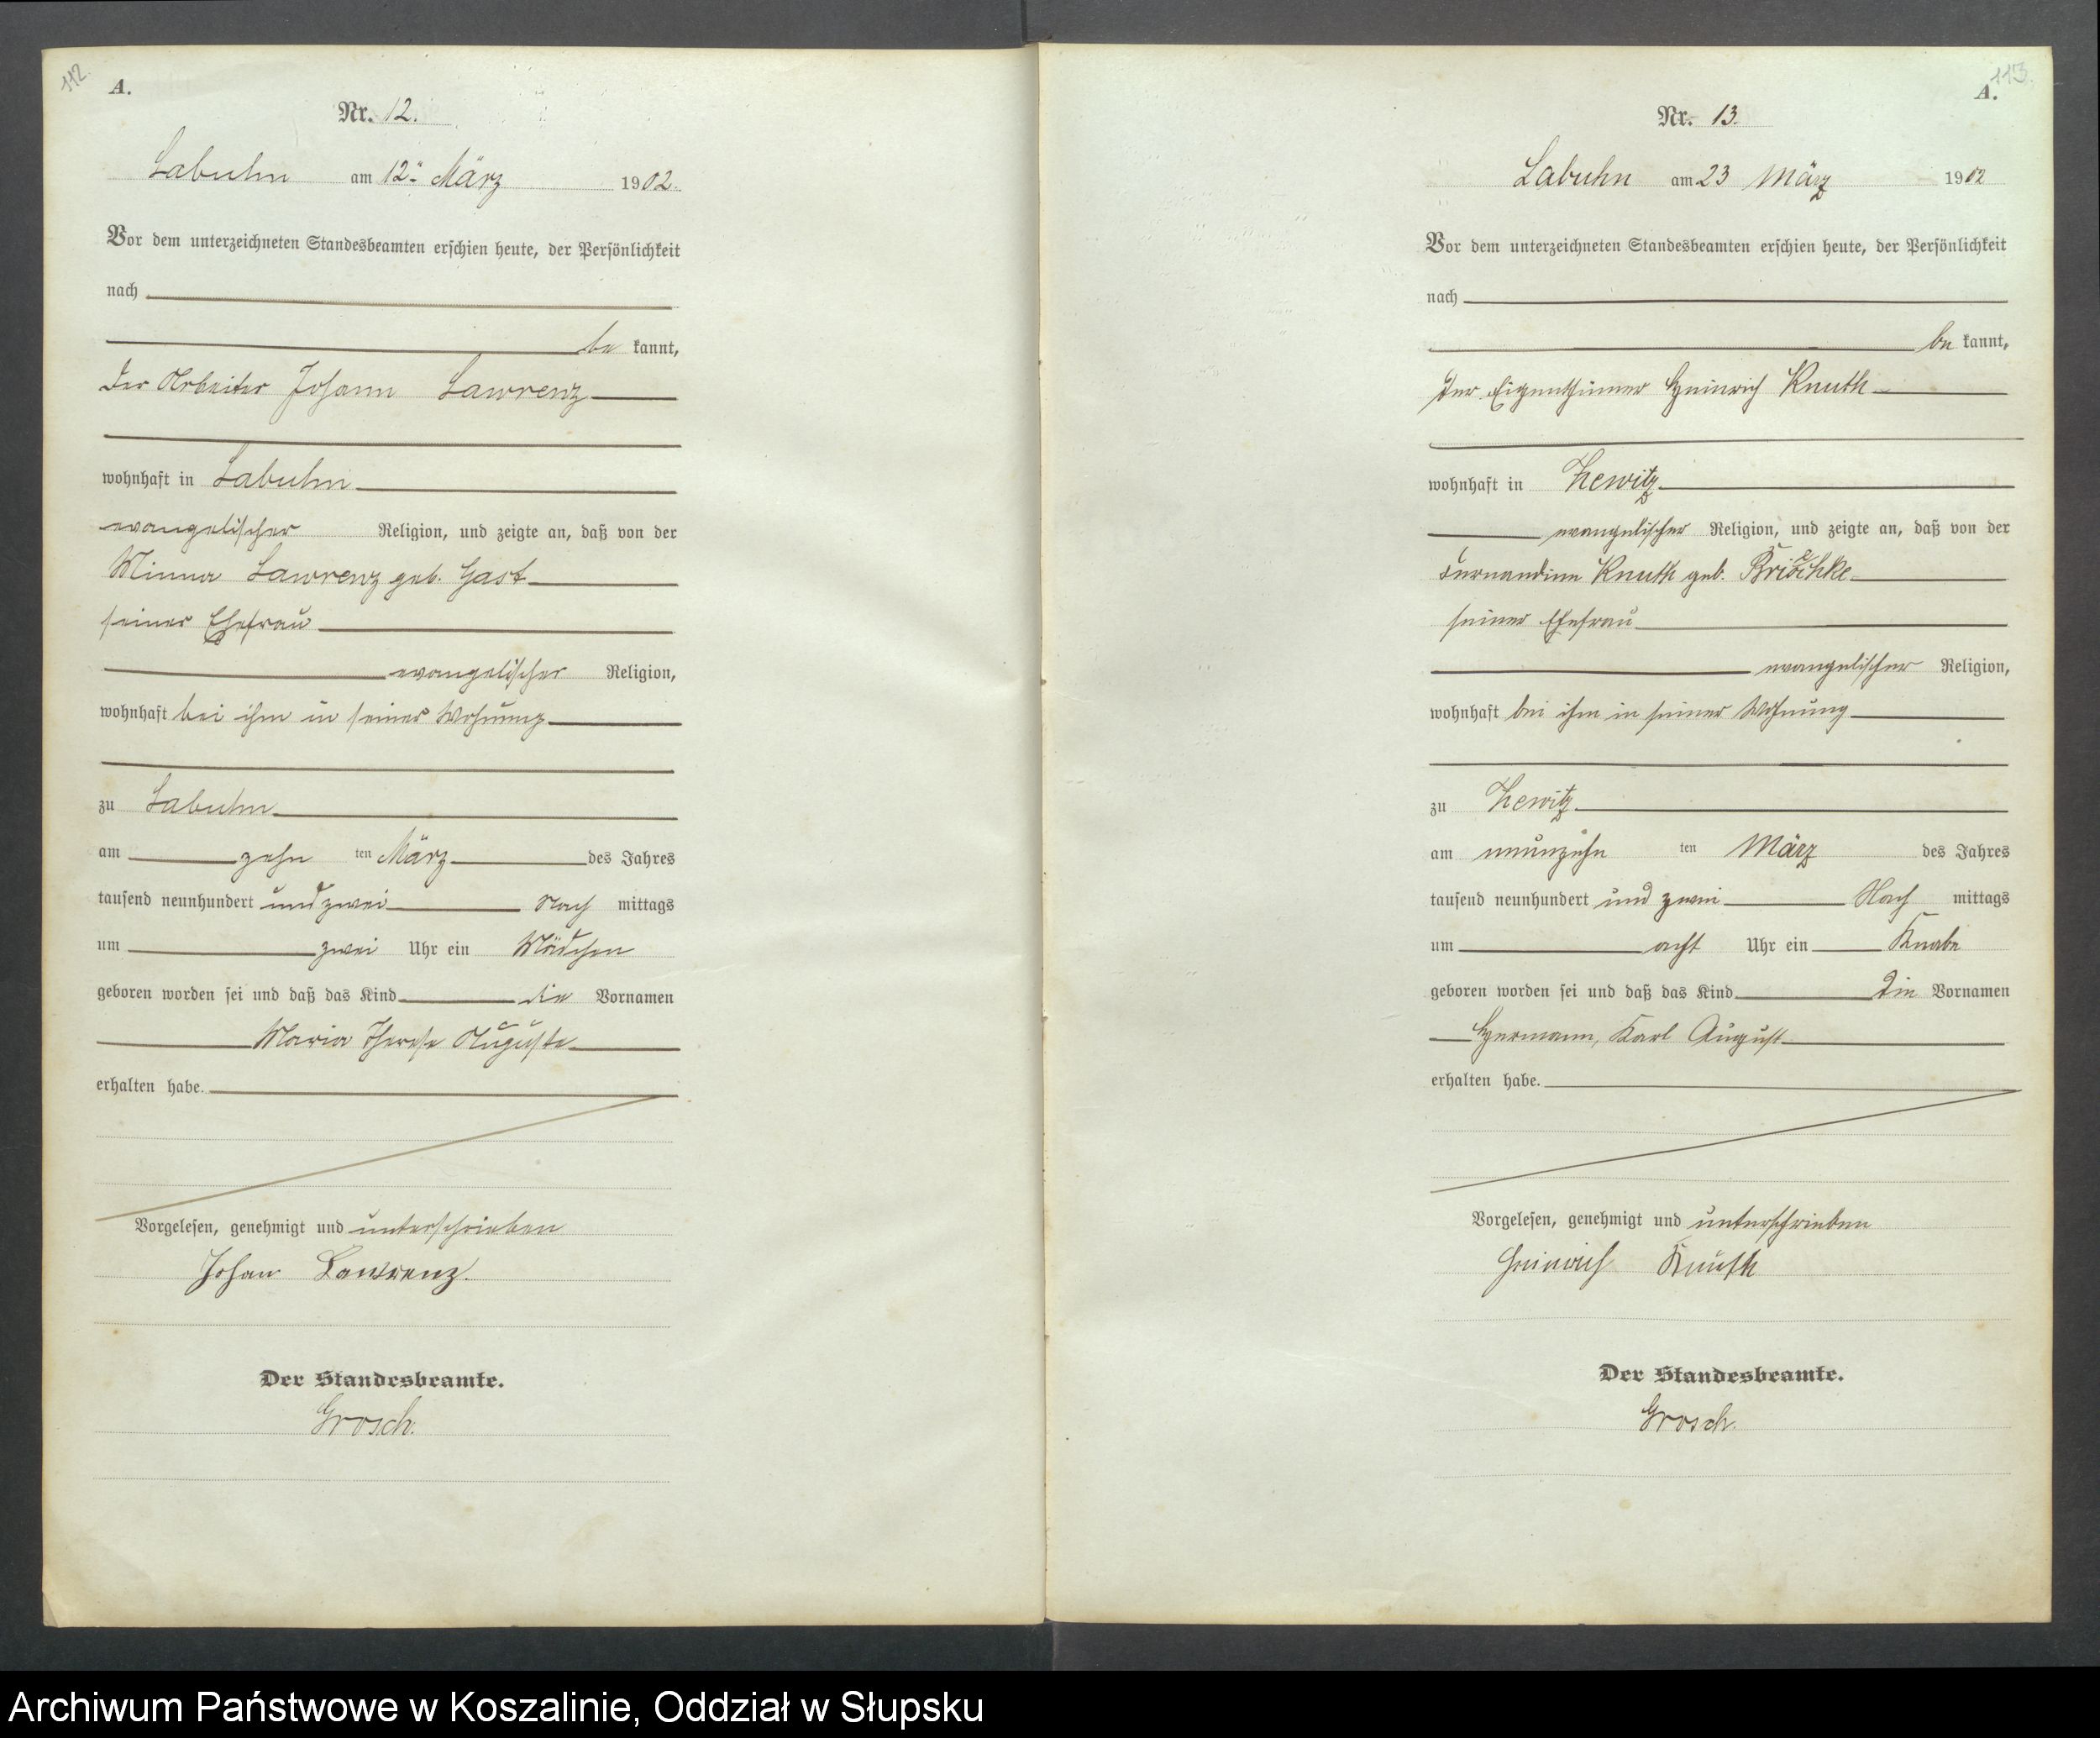 112.
A.
Nr. 12.
Labuhn am 12. März 1902.
Vor dem unterzeichneten Standesbeamten erschien heute, der Persönlichkeit
nach
be kannt,
der Arbeiter Johann Lawrenz
wohnhaft in Labuhn
evangelischer Religion, und zeigte an, daß von der
Minna Lawrenz geb. Gast
seiner Ehefrau
evangelischer Religion,
wohnhaft bei ihm in seiner Wohnung
zu Labuhn
am zehn ten März des Jahres
tausend neunhundert und zwei Nach mittags
um zwei Uhr ein Mädchen
geboren worden sei und daß das Kind die Vornamen
Maria Therese Auguste
erhalten habe.
Vorgelesen, genehmigt und unterschrieben
Johan Lawrenz.
Der Standesbeamte.
Grosch.
113.
A.
Nr. 13.
Labuhn am 23 März 1902
Vor dem unterzeichneten Standesbeamten erschien heute, der Persönlichkeit
nach
be kannt,
der Eigenthümer Heinrich Knuth
wohnhaft in Zewitz
evangelischer Religion, und zeigte an, daß von der
Fernandine Knuth geb.
seiner Ehefrau
evangelischer Religion,
wohnhaft bei ihm in seiner Wohnung
zu Zewitz
am neunzehn ten März des Jahres
tausend neunhundert und zwei Nach mittags
um acht Uhr ein Knabe
geboren worden sei und daß das Kind die Vornamen
Hermann, Karl August
erhalten habe.
Vorgelesen, genehmigt und unterschrieben
Heinrich Knuth
Der Standesbeamte.
Grosch.
Archiwum Państwowe w Koszalinie, Oddział w Słupsku